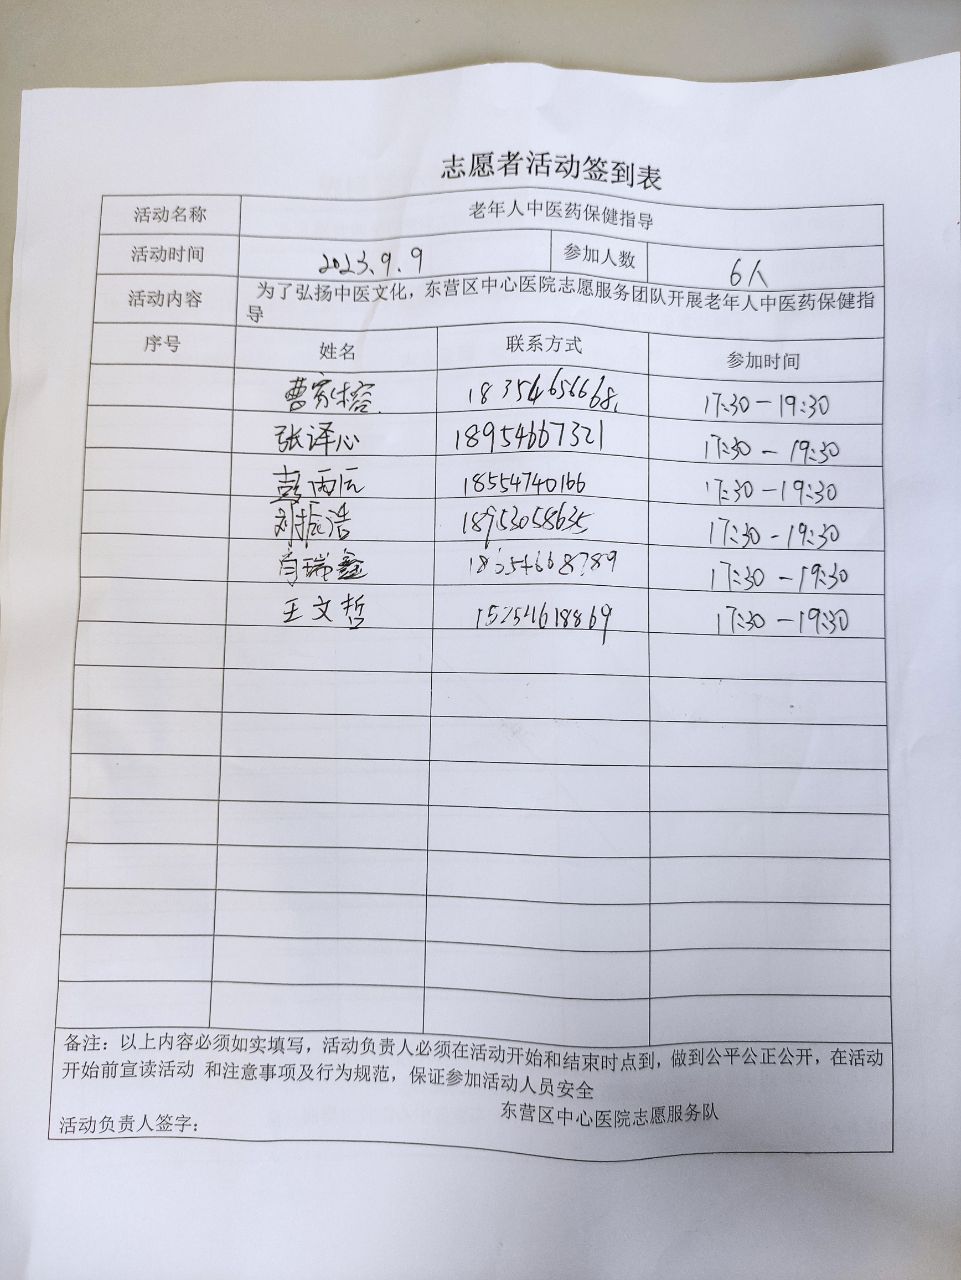 志愿者活动签到表
活动名称 老年人中医药保健指导
活动时间 2023.9.9 参加人数 6人
活动内容 为了弘扬中医文化，东营区中心医院志愿服务团队开展老年人中医药保健指
导
序号 姓名 联系方式 参加时间
曹家榕 18354656668 17:30-19:30
张译心 18954667321 17:30-19:30
彭丙辰 18554740166 17:30-19:30
刘振浩 18953058635 17:30-19:30
肖瑞鑫 17:30-19:30
王文哲 15254618869 17:30-19:30
备注：以上内容必须如实填写，活动负责人必须在活动开始和结束时点到，做到公平公正公开，在活动
开始前宣读活动 和注意事项及行为规范，保证参加活动人员安全
东营区中心医院志愿服务队
活动负责人签字：